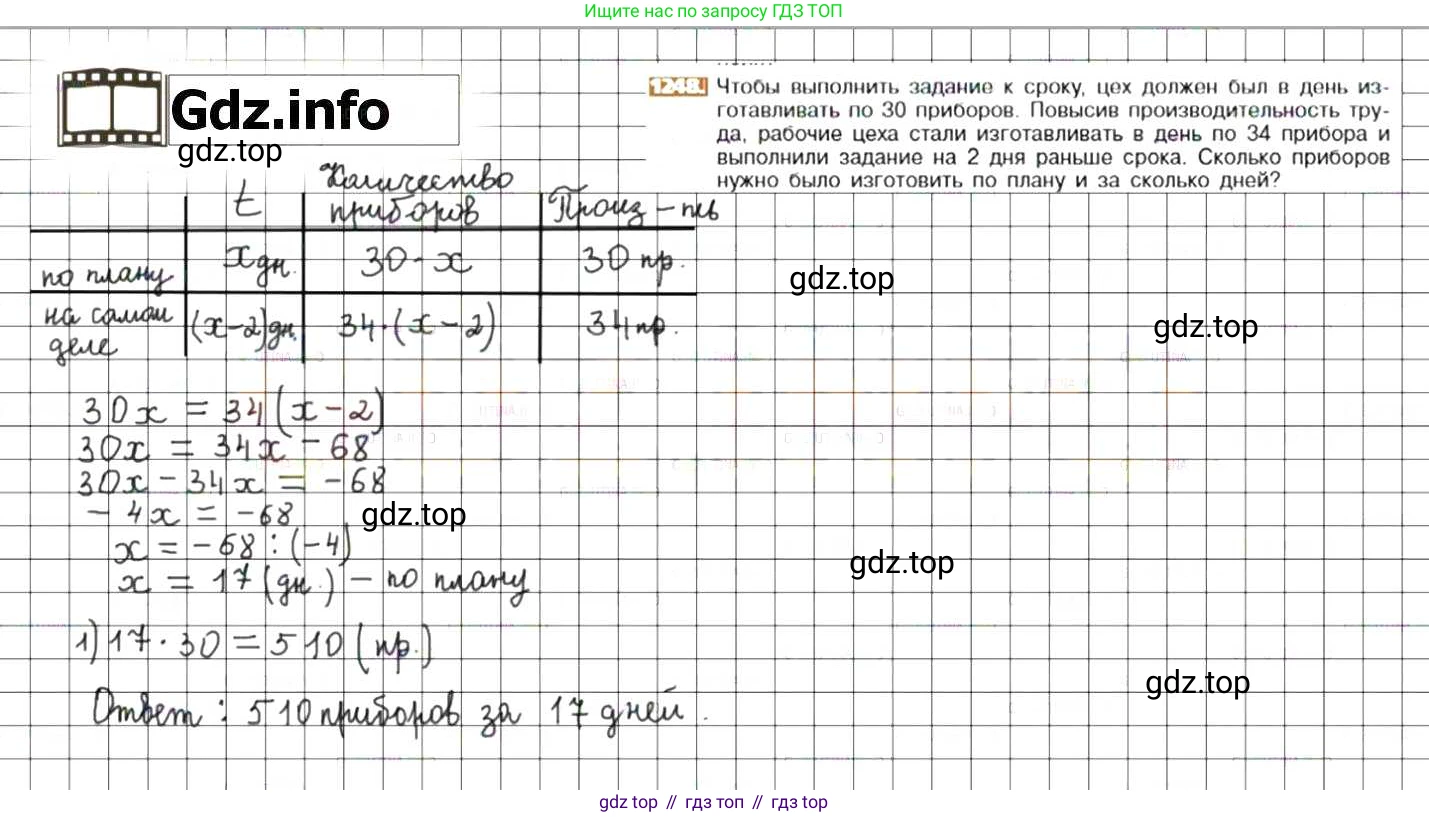 Ищите нас по запросу ГДЗ ТОП
Gdz.info
gdz.top
1248.
Чтобы выполнить задание к сроку, цех должен был в день из-
готавливать по 30 приборов. Повысив производительность тру-
да, рабочие цеха стали изготавливать в день по 34 прибора и
выполнили задание на 2 дня раньше срока. Сколько приборов
нужно было изготовить по плану и за сколько дней?
t Количество приборов Произ-ть
по плану x дн. 30·x 30 пр.
на самом деле (x-2)дн. 34·(x-2) 34 пр.
gdz.top
gdz.top
30x = 34(x-2)
30x = 34x - 68
30x - 34x = -68
- 4x = -68
gdz.top
x = -68 : (-4)
gdz.top
x = 17 (дн.) - по плану
1) 17·30 = 510 (пр.)
gdz.top
Ответ: 510 приборов за 17 дней.
gdz top // гдз топ // gdz top